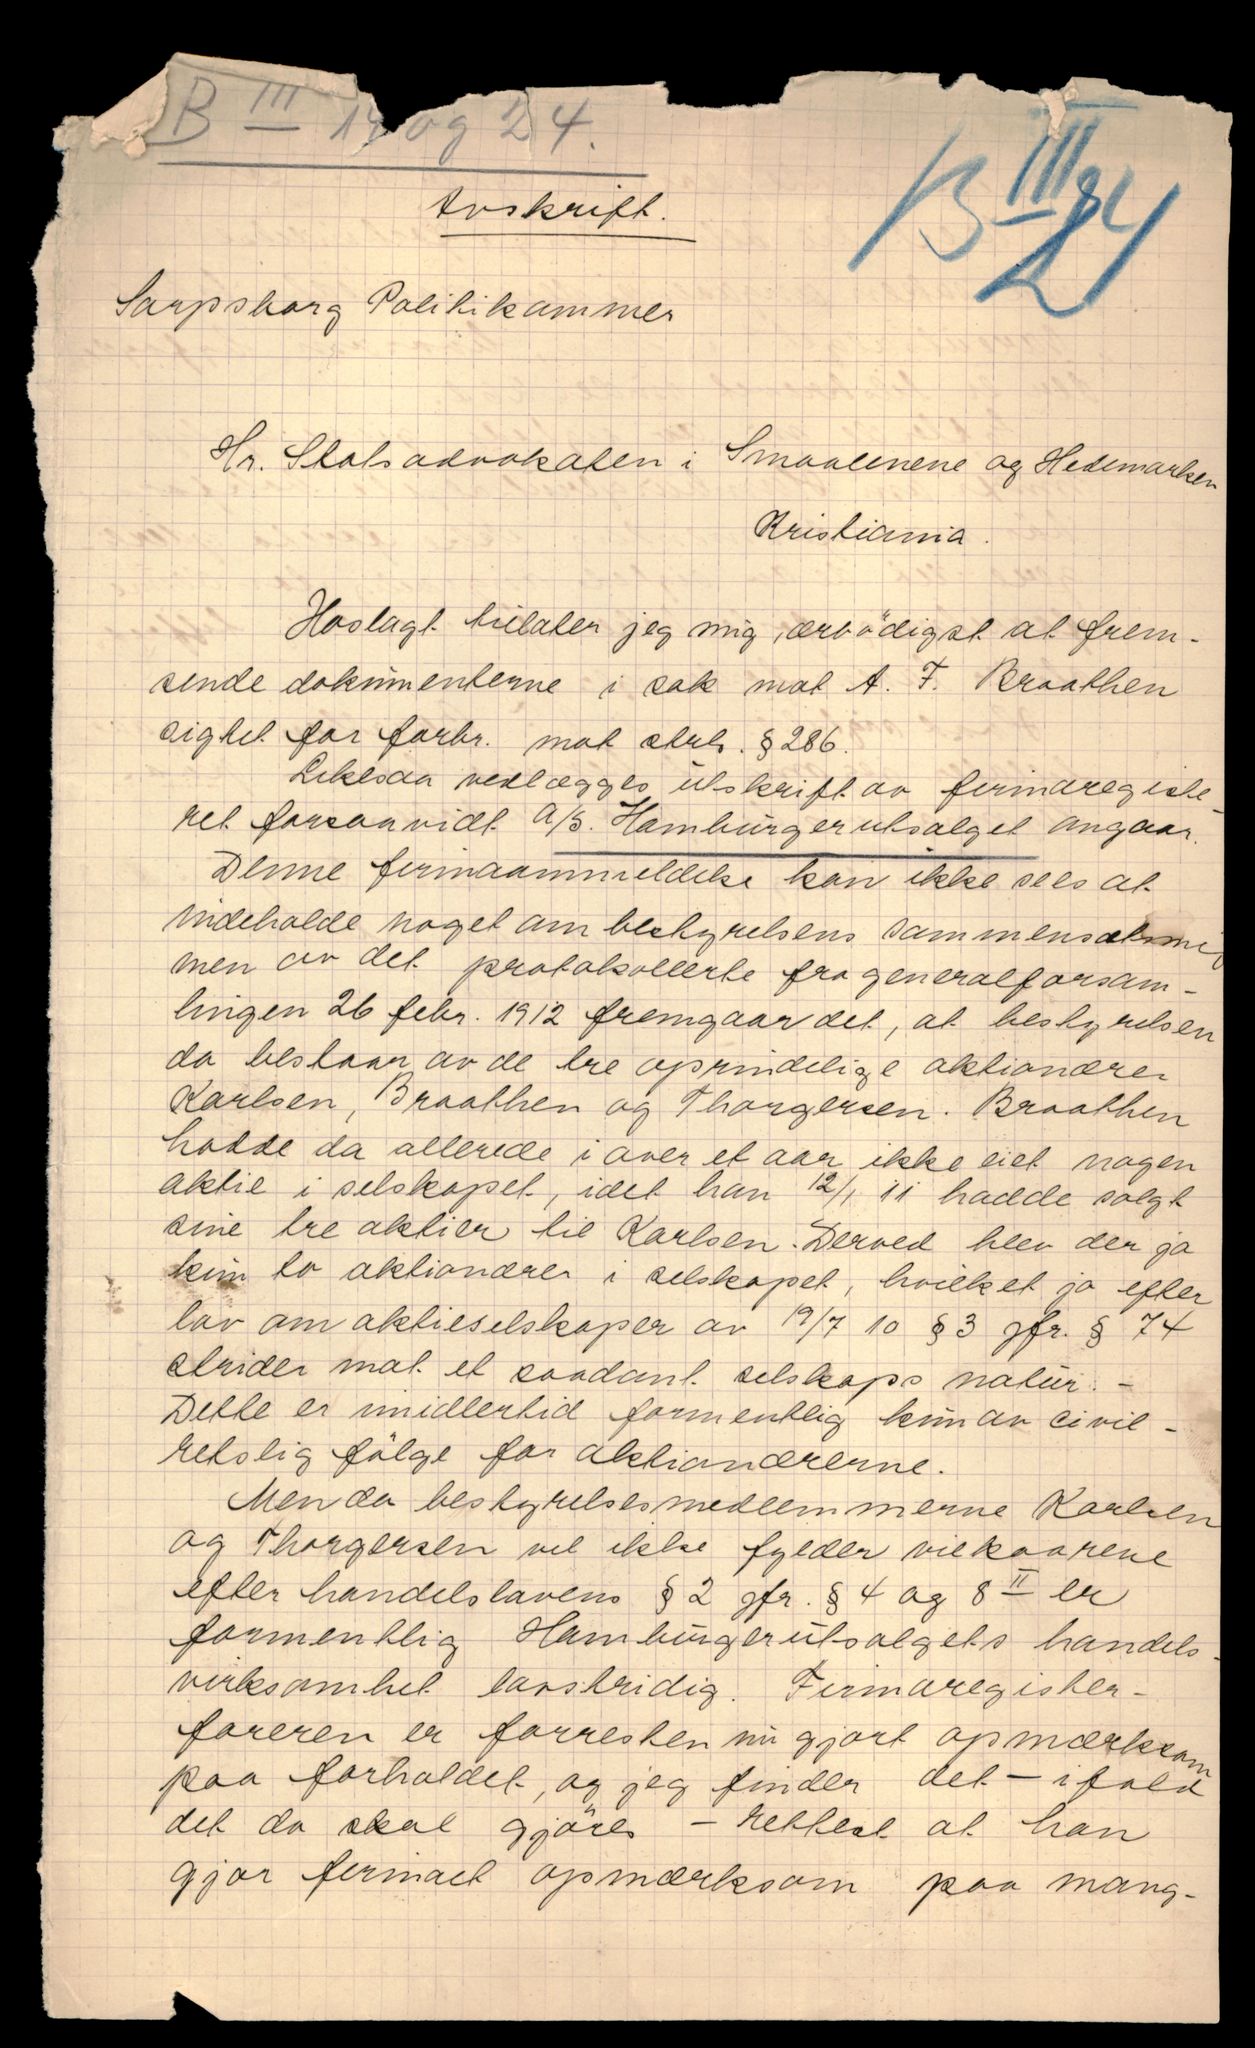 B III 14 og 24.
B III 24
Avskrift.
Sarpsborg Politikammer
Hr. Statsadvokaten i Smaalenene og Hedemarken
Kristiania.
Hoslagt tillater jeg mig, ærbödigst at frem-
sende dokumenterne i sak mot A. F. Braathen
sigtet for forbr. mot strls. § 286.
Likesaa vedlægges utskrift av firmaregiste-
ret forsaavidt A/S. Hamburgerutsalget angaar.
Denne firmaanmeldelse kan ikke sees at
indeholde noget om bestyrelsens sammensætning
men av det protokollerte fra generalforsam-
lingen 26 febr. 1912 fremgaar det, at bestyrelsen
da bestaar av de tre oprindelige aktionærer
Karlsen, Braathen og Thorgersen. Braathen
hadde da allerede i over et aar ikke eiet nogen
aktie i selskapet, idet han 12/1 11 hadde solgt
sine tre aktier til Karlsen. Derved blev der jo
kun to aktionærer i selskapet, hvilket jo efter
lov om aktieselskaper av 19/7 10 § 3 jfr. § 74
strider mot et saadant selskaps natur. -
Dette er imidlertid formentlig kun av civil-
retslig fölge for aktionærerne.
Men da bestyrelsesmedlemmerne Karlsen
og Thorgersen vel ikke fylder vilkaarene
efter handelslovens § 2 jfr. § 4 og 8 II er
formentlig Hamburgerutsalgets handels-
virksomhet lovstridig. Firmaregister-
föreren er forresten nu gjort opmærksom
paa forholdet, og jeg finder det - ifald
det da skal gjöres - rettest at han
gjør firmaet opmærksom paa mang-